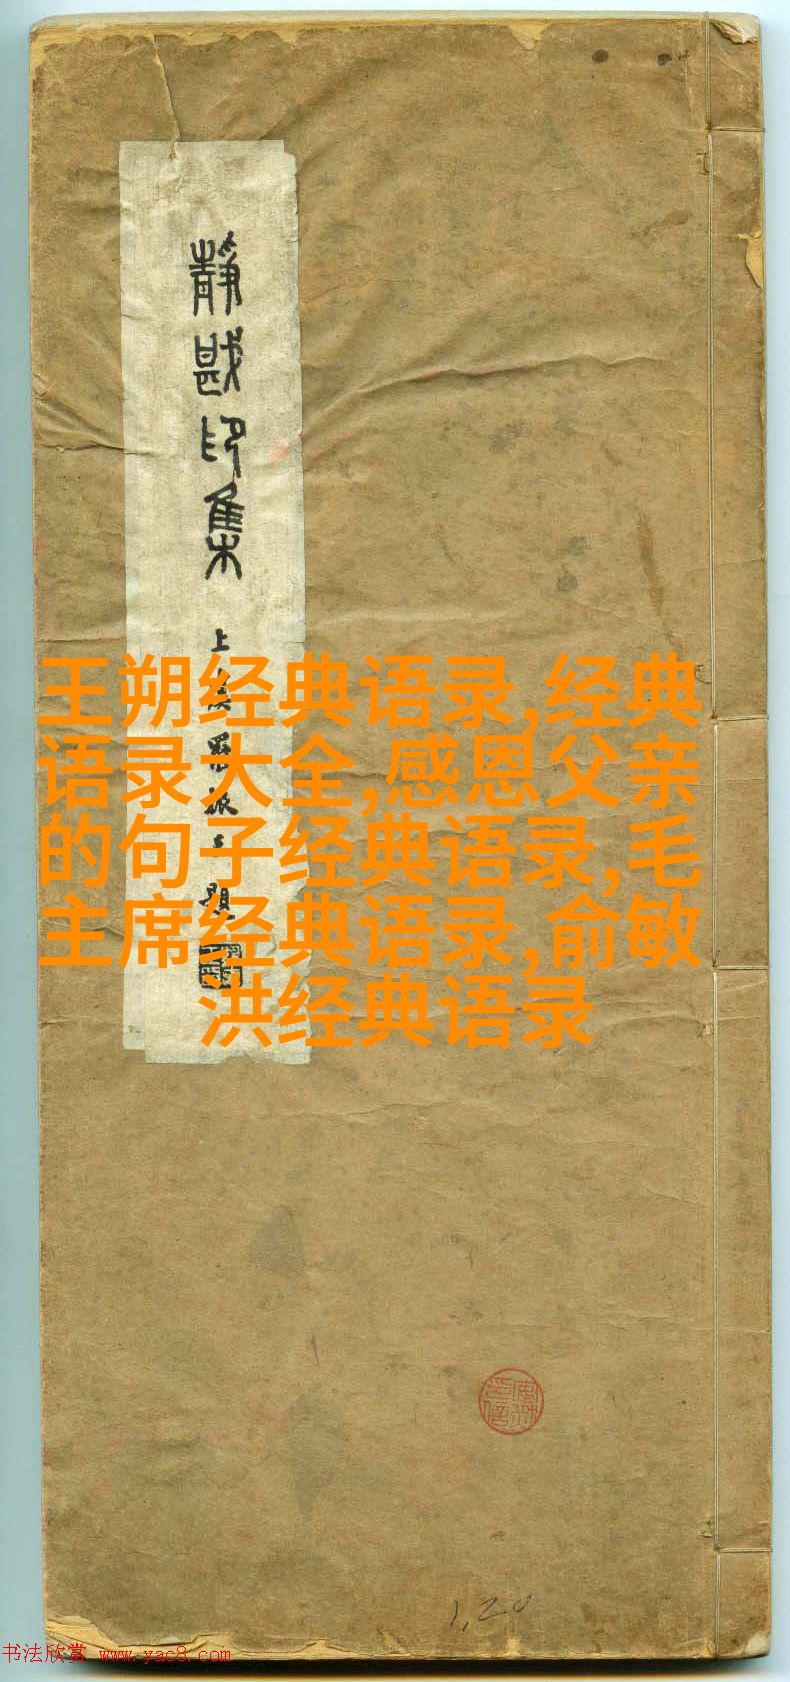 靜戡印集
王朔经典语录,经典
语录大全,感恩父亲
的句子经典语录,毛
主席经典语录,俞敏
洪经典语录
1,20
书法欣赏 www.yac8.com